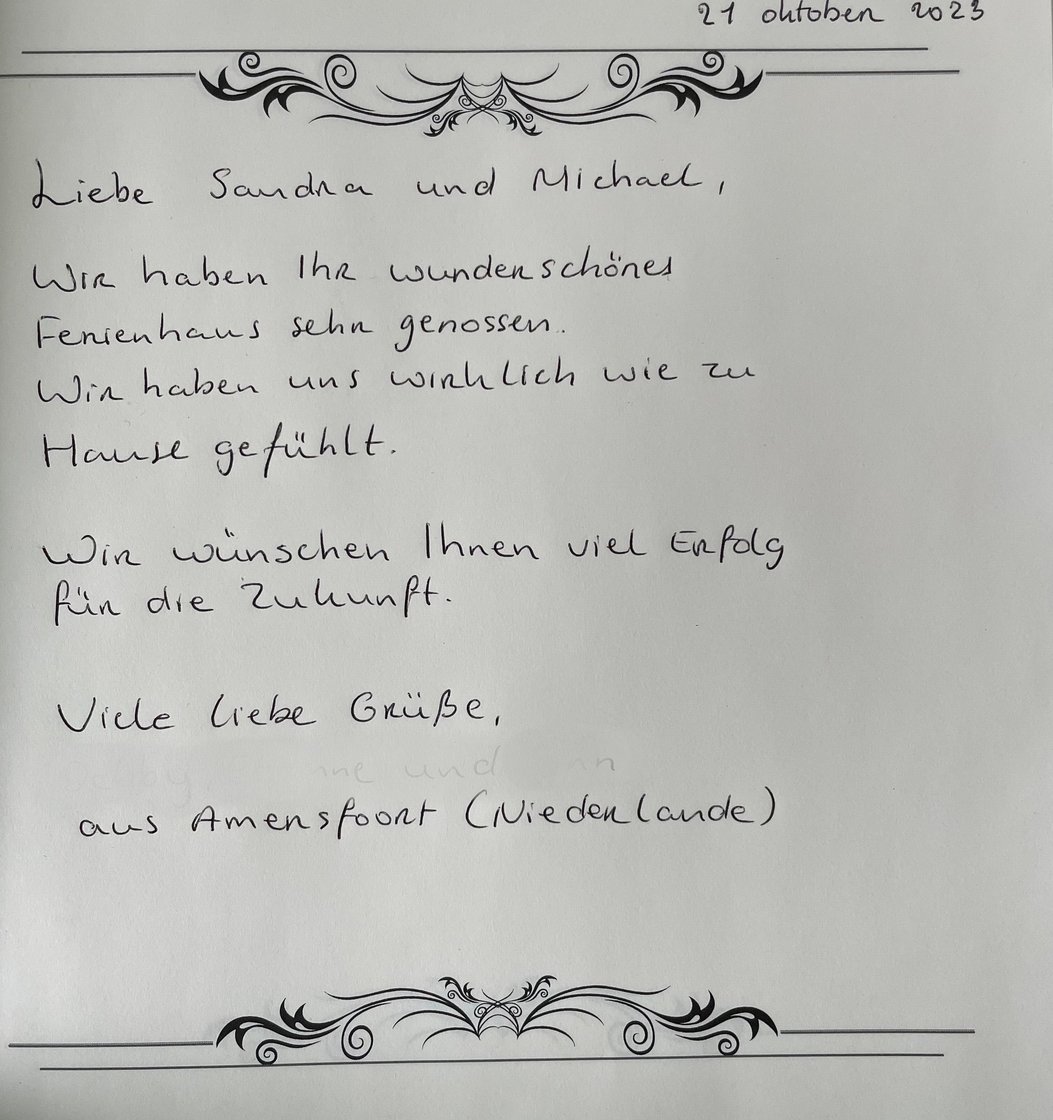 21 oktober 2023
Liebe Sandra und Michael,
Wir haben Ihr wunderschönes
Ferienhaus sehr genossen.
Wir haben uns wirklich wie zu
Hause gefühlt.
Wir wünschen Ihnen viel Erfolg
für die Zukunft.
Viele liebe Grüße,
und
aus Amersfoort (Niederlande)